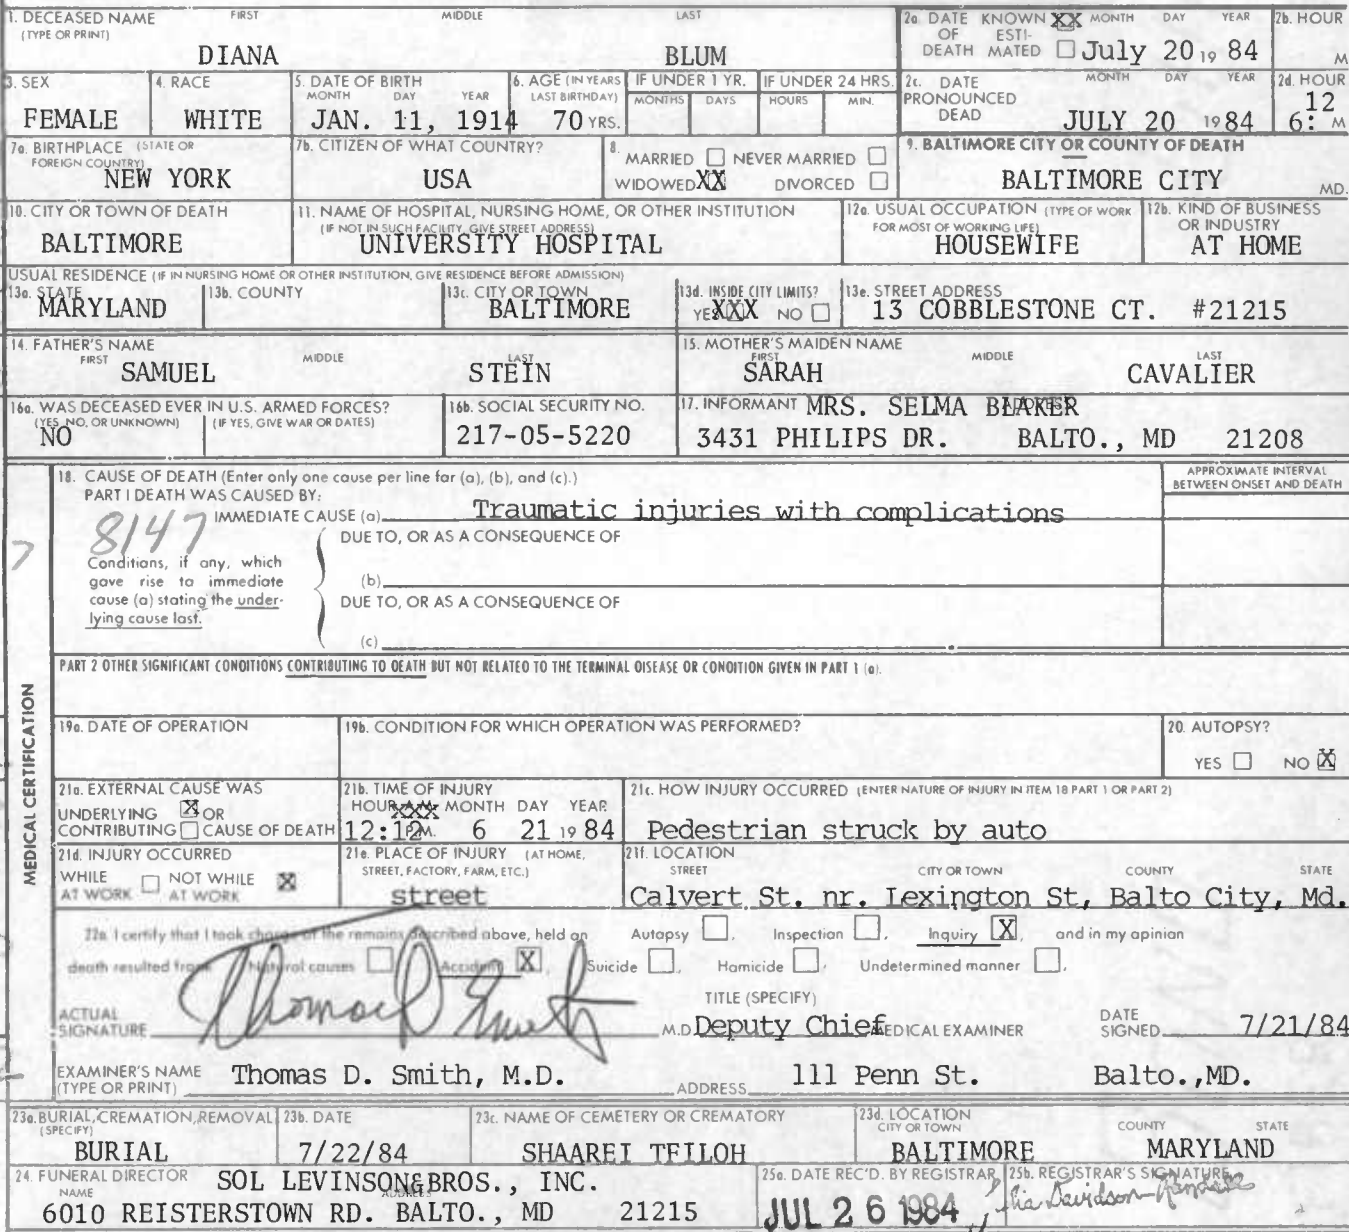 1. DECEASED NAME FIRST MIDDLE LAST
(TYPE OR PRINT)
DIANA BLUM
2a. DATE KNOWN XX MONTH DAY YEAR
OF ESTI-
DEATH MATED July 20 19 84
2b. HOUR
M
3. SEX
FEMALE
4. RACE
WHITE
5. DATE OF BIRTH
MONTH DAY YEAR
JAN. 11, 1914
6. AGE (IN YEARS
LAST BIRTHDAY)
70 YRS.
IF UNDER 1 YR.
MONTHS DAYS
IF UNDER 24 HRS.
HOURS MIN.
2c. DATE MONTH DAY YEAR
PRONOUNCED
DEAD JULY 20 1984
2d. HOUR
12
6: M
7a. BIRTHPLACE (STATE OR
FOREIGN COUNTRY)
NEW YORK
7b. CITIZEN OF WHAT COUNTRY?
USA
8.
MARRIED NEVER MARRIED
WIDOWED XX DIVORCED
9. BALTIMORE CITY OR COUNTY OF DEATH
BALTIMORE CITY MD.
10. CITY OR TOWN OF DEATH
BALTIMORE
11. NAME OF HOSPITAL, NURSING HOME, OR OTHER INSTITUTION
(IF NOT IN SUCH FACILITY, GIVE STREET ADDRESS)
UNIVERSITY HOSPITAL
12a. USUAL OCCUPATION (TYPE OF WORK
FOR MOST OF WORKING LIFE)
HOUSEWIFE
12b. KIND OF BUSINESS
OR INDUSTRY
AT HOME
USUAL RESIDENCE (IF IN NURSING HOME OR OTHER INSTITUTION, GIVE RESIDENCE BEFORE ADMISSION)
13a. STATE
MARYLAND
13b. COUNTY
13c. CITY OR TOWN
BALTIMORE
13d. INSIDE CITY LIMITS?
YES XXX NO
13e. STREET ADDRESS
13 COBBLESTONE CT. #21215
14. FATHER'S NAME
FIRST MIDDLE LAST
SAMUEL STEIN
15. MOTHER'S MAIDEN NAME
FIRST MIDDLE LAST
SARAH CAVALIER
16a. WAS DECEASED EVER IN U.S. ARMED FORCES?
(YES, NO, OR UNKNOWN) (IF YES, GIVE WAR OR DATES)
NO
16b. SOCIAL SECURITY NO.
217-05-5220
17. INFORMANT MRS. SELMA
3431 PHILIPS DR. BALTO., MD 21208
MEDICAL CERTIFICATION
18. CAUSE OF DEATH (Enter only one cause per line for (a), (b), and (c).)
PART I DEATH WAS CAUSED BY:
APPROXIMATE INTERVAL
BETWEEN ONSET AND DEATH
8147
7
IMMEDIATE CAUSE (a) Traumatic injuries with complications
DUE TO, OR AS A CONSEQUENCE OF
Conditions, if any, which
gave rise to immediate
cause (a) stating the under-
lying cause last.
(b)
DUE TO, OR AS A CONSEQUENCE OF
(c)
PART 2 OTHER SIGNIFICANT CONDITIONS CONTRIBUTING TO DEATH BUT NOT RELATED TO THE TERMINAL DISEASE OR CONDITION GIVEN IN PART 1 (a).
19a. DATE OF OPERATION
19b. CONDITION FOR WHICH OPERATION WAS PERFORMED?
20. AUTOPSY?
YES NO X
21a. EXTERNAL CAUSE WAS
UNDERLYING X OR
CONTRIBUTING CAUSE OF DEATH
21b. TIME OF INJURY
HOUR XXX MONTH DAY YEAR
12:12 P.M. 6 21 19 84
21c. HOW INJURY OCCURRED (ENTER NATURE OF INJURY IN ITEM 18 PART 1 OR PART 2)
Pedestrian struck by auto
21d. INJURY OCCURRED
WHILE NOT WHILE X
AT WORK AT WORK
21e. PLACE OF INJURY (AT HOME,
STREET, FACTORY, FARM, ETC.)
street
21f. LOCATION
STREET CITY OR TOWN COUNTY STATE
Calvert St. nr. Lexington St, Balto City, Md.
22a. I certify that I took charge of the remains described above, held an Autopsy , Inspection , Inquiry X, and in my opinion
death resulted from Natural causes Accident X, Suicide , Homicide , Undetermined manner ,
ACTUAL
SIGNATURE Thomas D Smith
TITLE (SPECIFY)
M.D. Deputy Chief MEDICAL EXAMINER
DATE
SIGNED 7/21/84
EXAMINER'S NAME
(TYPE OR PRINT) Thomas D. Smith, M.D. ADDRESS 111 Penn St. Balto.,MD.
23a. BURIAL, CREMATION, REMOVAL
(SPECIFY)
BURIAL
23b. DATE
7/22/84
23c. NAME OF CEMETERY OR CREMATORY
SHAAREI TFILOH
23d. LOCATION
CITY OR TOWN COUNTY STATE
BALTIMORE MARYLAND
24. FUNERAL DIRECTOR SOL LEVINSON&BROS., INC.
NAME ADDRESS
6010 REISTERSTOWN RD. BALTO., MD 21215
25a. DATE REC'D. BY REGISTRAR
JUL 26 1984
25b. REGISTRAR'S SIGNATURE
Davidson